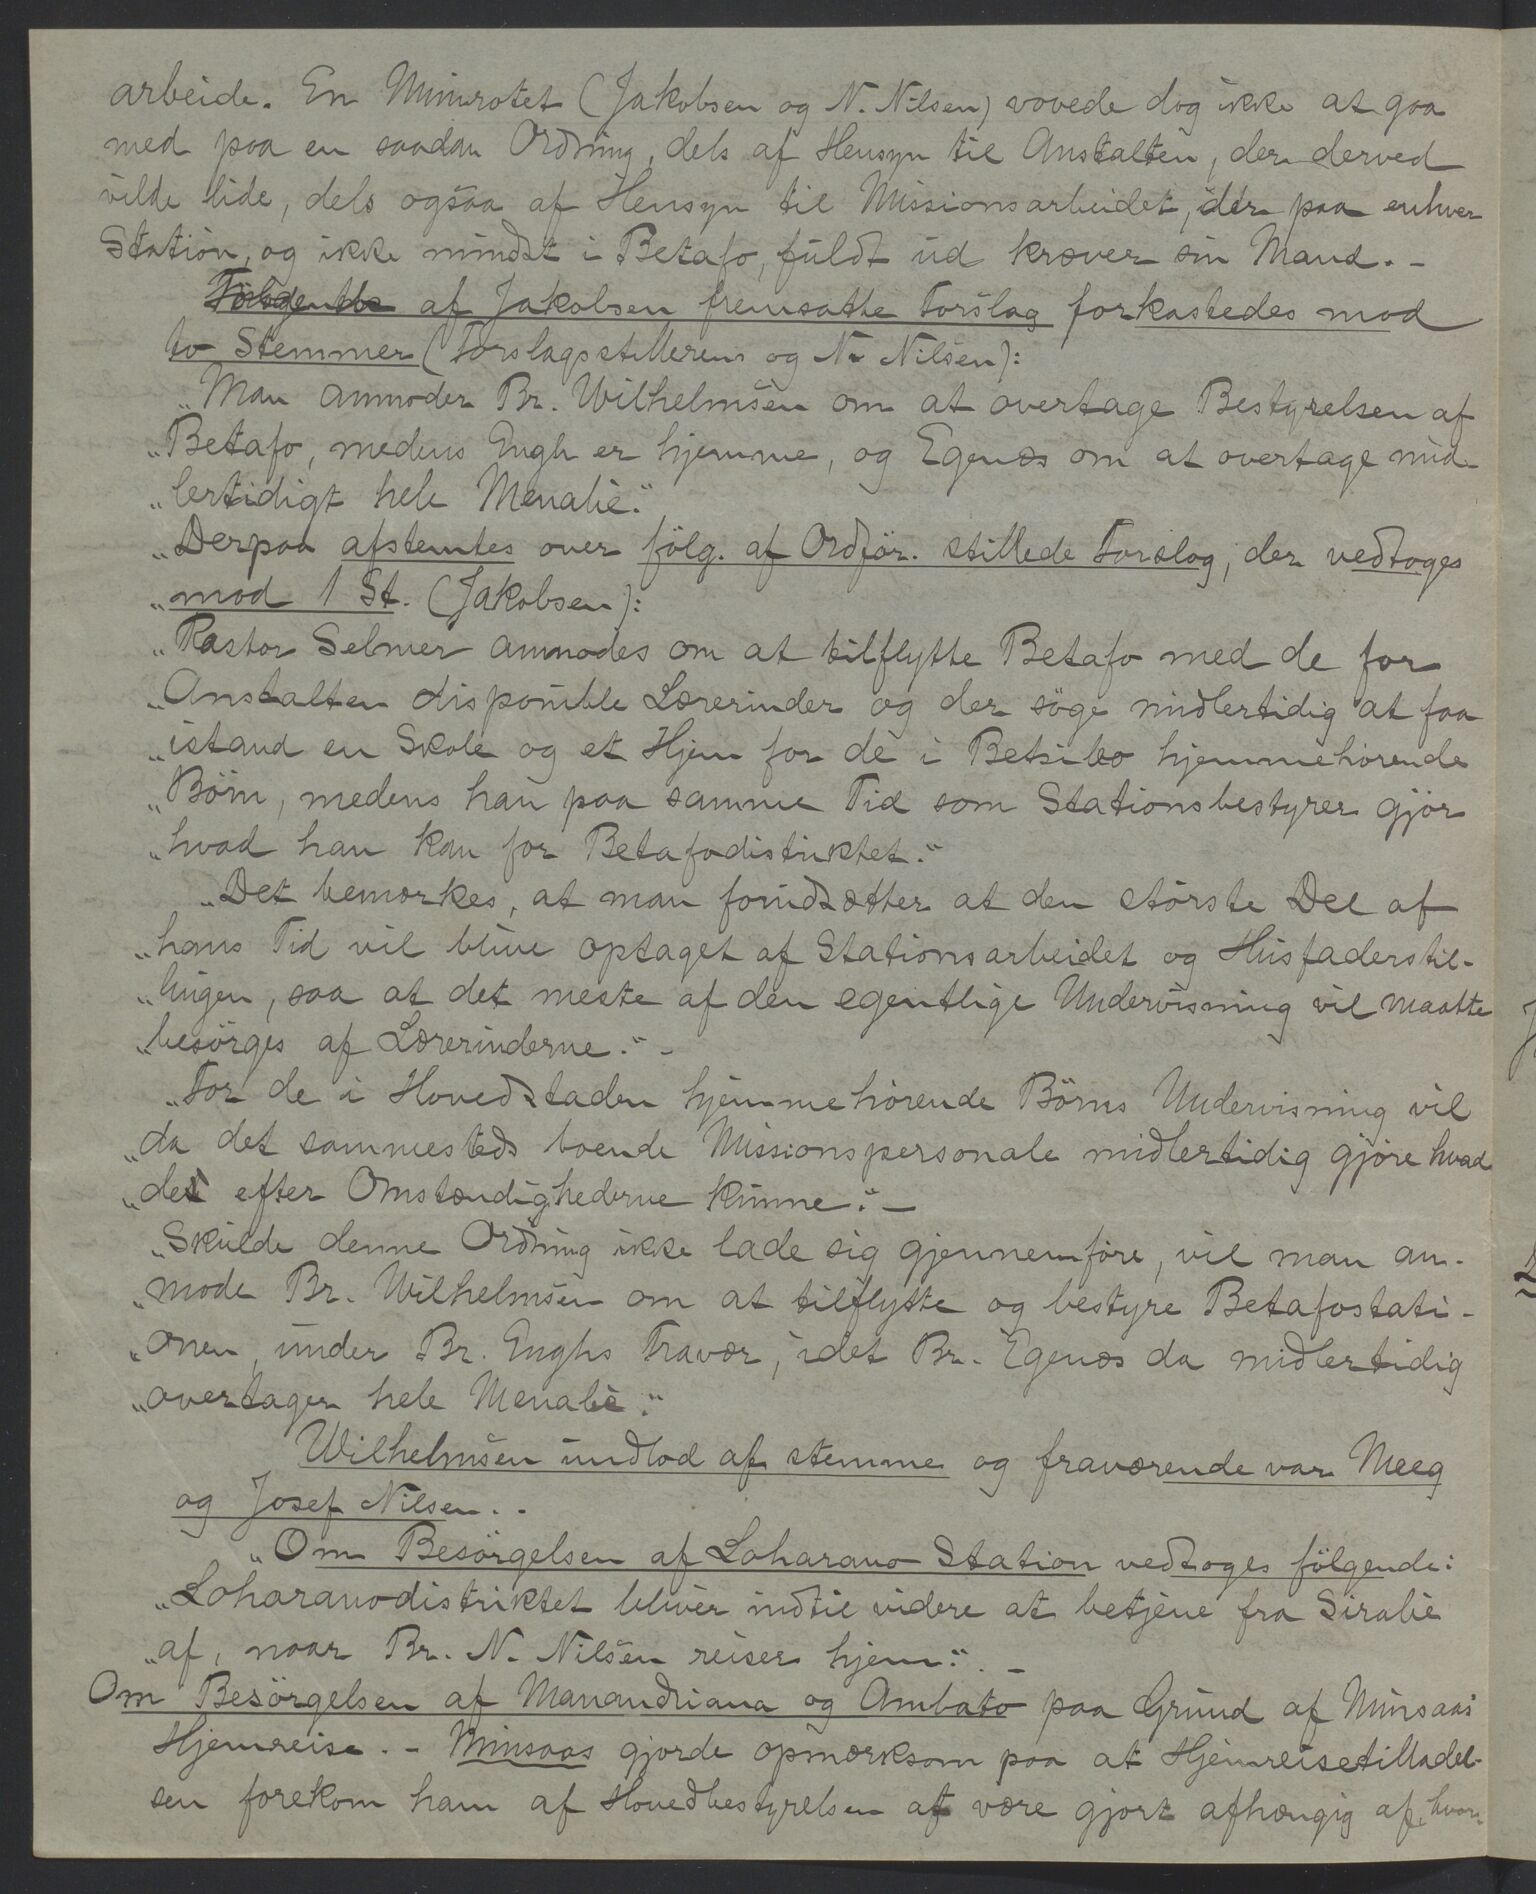 arbeide. En Minorotet (Jakobsen og N. Nilsen) vovede dog ikke at gaa
med paa en saadan Ordning, dels af Hensyn til Anstalten, der derved
vilde lide, dels ogsaa af Hensyn til Missionsarbeidet, der paa enhver
Station, og ikke mindst i Betafo, fuldt ud kræver sin Mand. -
af Jakobsen fremsatte Forslag forkastedes mod
to Stemmer (Forslagsstilleren og N. Nilsen):
"Man anmoder Br. Wilhelmsen om at overtage Bestyrelsen af
"Betafo, medens Engh er hjemme, og Egenæs om at overtage mid-
"lertidigt hele Menabe."
"Derpaa afstemtes over følg. af Ordfør. stillede Forslag, der vedtoges
"mod 1 St. (Jakobsen):
"Pastor Selmer anmodes om at tilflytte Betafo med de for
"Anstalten disponible Lærerinder og der søge midlertidig at faa
"istand en Skole og et Hjem for de i Betsileo hjemmehørende
"Børn, medens han paa samme Tid som Stationsbestyrer gjør
"hvad han kan for Betafodistriktet."
"Det bemærkes, at man forudsætter at den største Del af
"hans Tid vil blive optaget af Stationsarbeidet og Husfaderstil-
"lingen, saa at det meste af den egentlige Undervisning vil maatte
"besørges af Lærerinderne." -
"For de i Hovedstaden hjemmehørende Børns Undervisning vil
"da det sammesteds boende Missionspersonale midlertidig gjøre hvad
"de efter Omstændighederne kunne." -
"Skulde denne Ordning ikke lade sig gjennemføre, vil man an-
"mode Br. Wilhelmsen om at tilflytte og bestyre Betafostati-
"onen, under Br. Enghs Fravær, idet Br. Egenæs da midlertidig
"overtager hele Menabe."
Wilhelmsen undlod af stemme og fraværende var Meeg
og Josef Nilsen. -
"Om Besørgelsen af Loharano Station vedtoges følgende:
"Loharanodistriktet bliver indtil videre at betjene fra Sirabe
"af, naar Br. N. Nilsen reiser hjem." -
Om Besørgelsen af Manandriana og Ambato paa Grund af Minsaas'
Hjemreise. - Minsaas gjorde opmærksom paa at Hjemreisetilladel-
sen forekom ham af Hovedbestyrelsen at være gjort afhængig af, hvor-